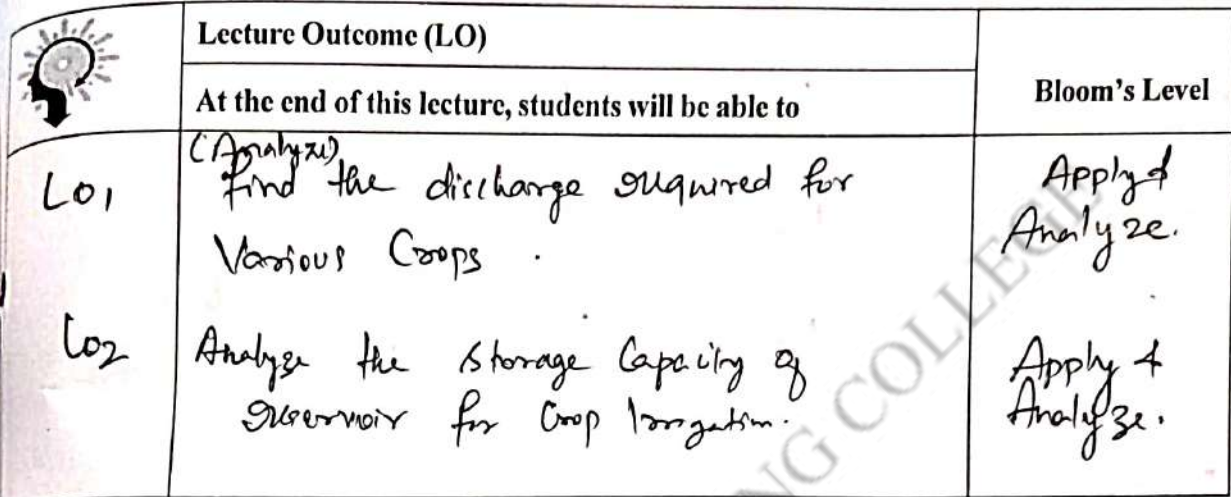 Lecture Outcome (LO)
At the end of this lecture, students will be able to
Bloom's Level
(Analyze)
LO1 Find the discharge required for Apply &
Various Crops . Analyze.
LO2 Analyze the Storage Capacity of Apply &
reservoir for Crop Irrigation. Analyze.
NG COLLEGE